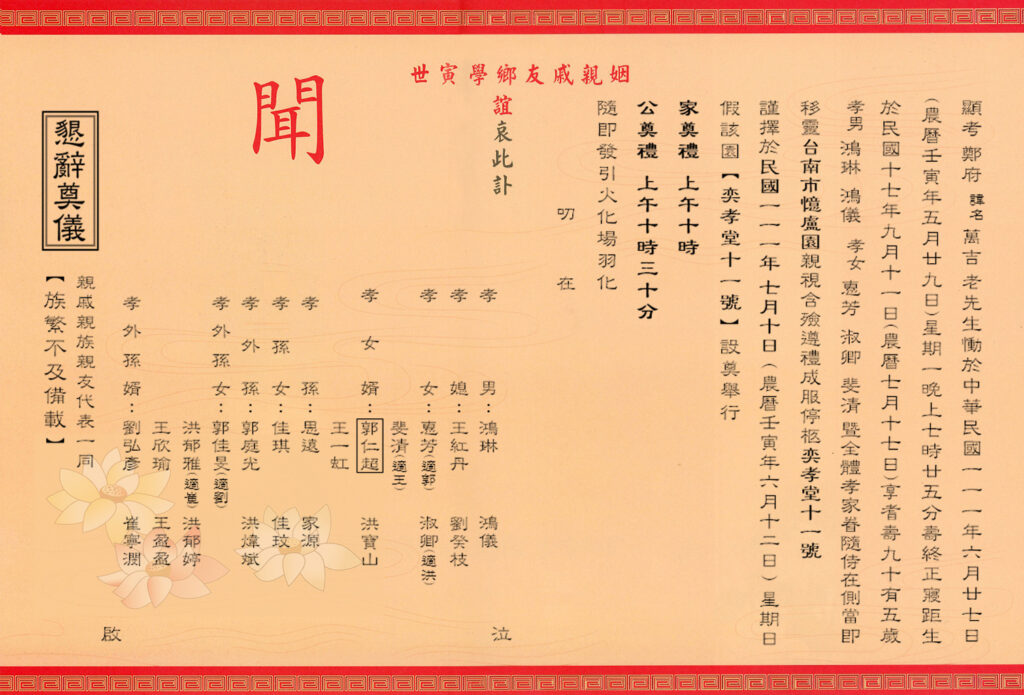 顯考 鄭府 諱名 萬吉 老先生慟於中華民國一一一年六月廿七日
(農曆壬寅年五月廿九日)星期一晚上七時廿五分壽終正寢距生
於民國十七年九月十一日(農曆七月十七日)享耆壽九十有五歲
孝男 鴻琳 鴻儀 孝女 惠芳 淑卿 斐清 暨全體孝家眷隨侍在側當即
移靈台南市憶廬園親視含殮遵禮成服停柩奕孝堂十一號
謹擇於民國一一一年七月十日(農曆壬寅年六月十二日)星期日
假該園【奕孝堂十一號】設奠舉行
家奠禮 上午十時
公奠禮 上午十時三十分
隨即發引火化場羽化
叨 在
姻親戚友鄉學寅世
誼哀此訃
聞
孝 男:鴻琳 鴻儀 泣
孝 媳:王紅丹 劉癸枝
孝 女:惠芳(適郭) 淑卿(適洪)
斐清(適王)
孝 女 婿:郭仁超 洪寶山
王一虹
孝 孫:思遠 家源
孝 孫 女:佳琪 佳玟
孝 外 孫:郭庭光 洪煒斌
孝 外 孫 女:郭佳旻(適劉)
洪郁雅(適崔) 洪郁婷
王欣瑜 王盈盈
孝 外 孫 婿:劉弘彥 崔寧潤
親戚親族親友代表一同 啟
【族繁不及備載】
懇辭奠儀